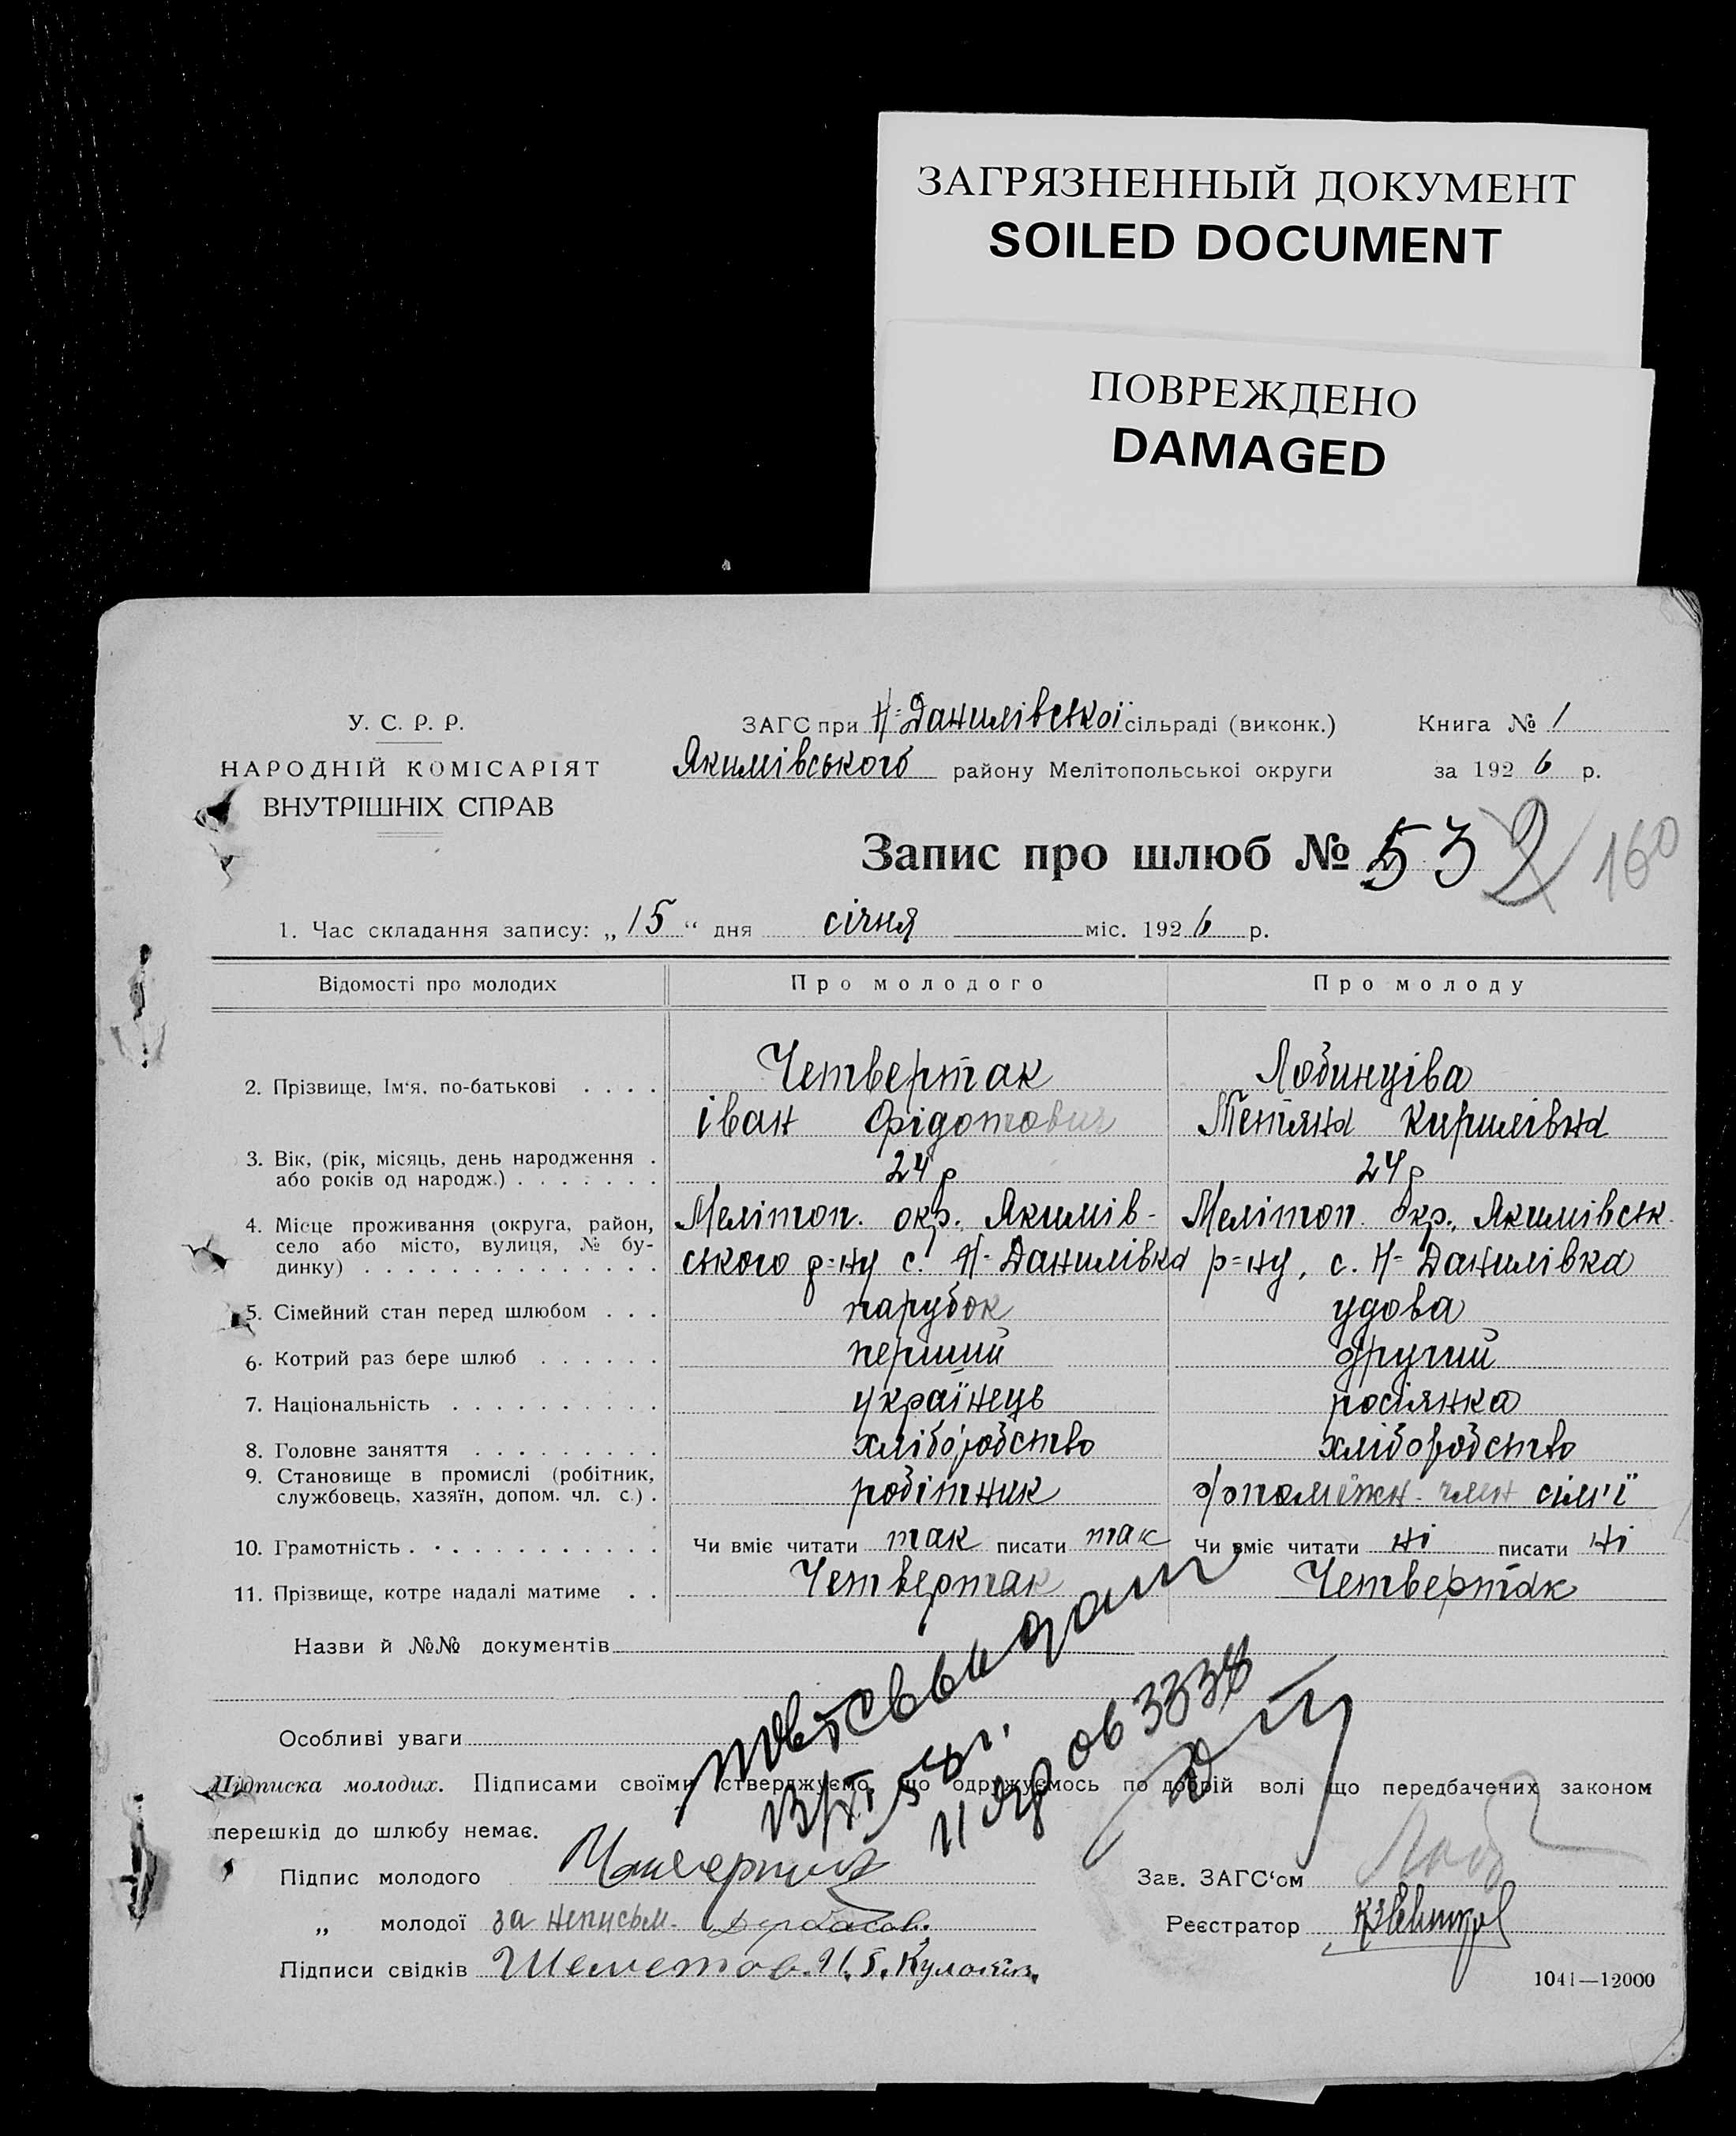 ЗАГРЯЗНЕННЫЙ ДОКУМЕНТ
SOILED DOCUMENT
ПОВРЕЖДЕНО
DAMAGED
У. С. Р. Р.
НАРОДНІЙ КОМІСАРІЯТ
ВНУТРІШНІХ СПРАВ
ЗАГС при Н=Данилівської сільраді (виконк.) Книга № 1
Якимівського району Мелітопольської округи за 1926 р.
Запис про шлюб № 53 2 160
1. Час складання запису: „15“ дня січня міс. 1926 р.
Відомості про молодих Про молодого Про молоду
2. Прізвище, Ім'я, по-батькові . . . . Четвертак Лобинціва
іван Фідотович Тетяна Кирилівна
3. Вік, (рік, місяць, день народження . або років од народж.) . . . . . . . 24 р 24 р
4. Місце проживання (округа, район, Мелітоп. окр., Якимів- Мелітоп. Окр., Якимівськ.
село або місто, вулиця, № бу-динку) . . . . . . . . . . . . . . ського р=ну с. Н=Данилівка р=ну, с. Н=Данилівка
5. Сімейний стан перед шлюбом . . . парубок удова
6. Котрий раз бере шлюб . . . . . . перший другий
7. Національність . . . . . . . . . . українець росіянка
8. Головне заняття . . . . . . . . . хліборобство хліборобство
9. Становище в промислі (робітник, службовець, хазяїн, допом. чл. с.) . робітник член сім'ї
10. Грамотність . . . . . . . . . . . . Чи вміє читати так писати так Чи вміє читати ні писати ні
11. Прізвище, котре надалі матиме . . Четвертак Четвертак
Назви й №№ документів
Особливі уваги
Підписка молодих. Підписами своїми стверджуємо, що одружуємось по добрій волі що передбачених законом
перешкід до шлюбу немає.
Підпис молодого Зав. ЗАГС'ом
„ молодої за неписьм. Реєстратор
Підписи свідків Шеметов.
1041—12000